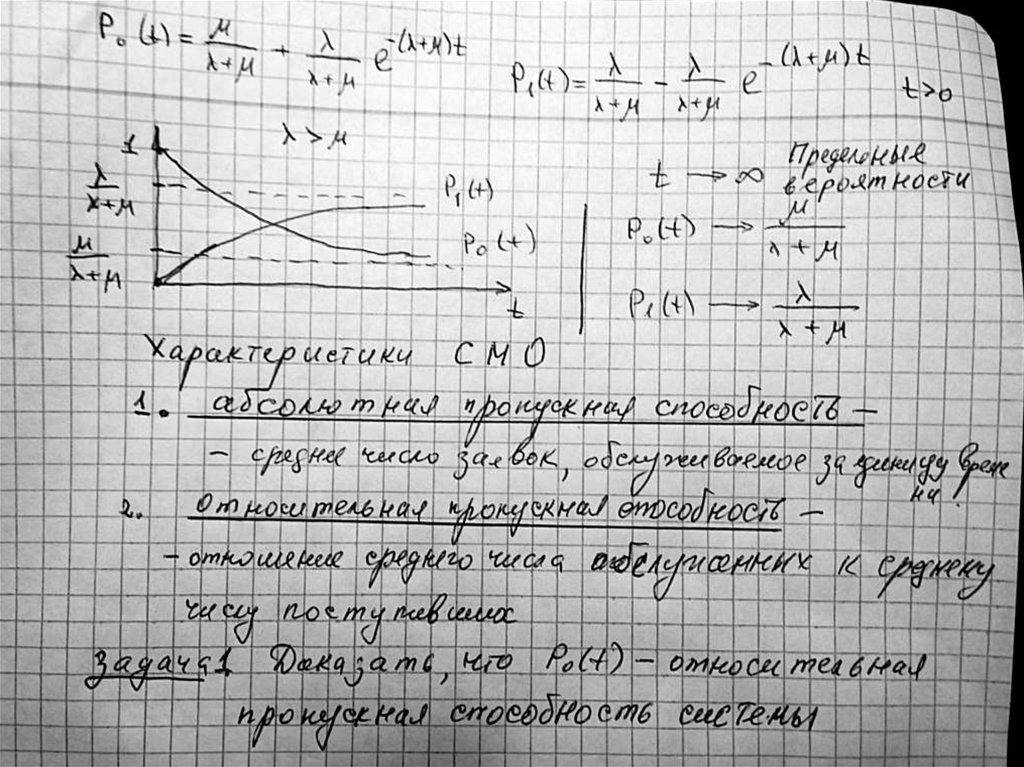 P₀(t) = μ/(λ+μ) + λ/(λ+μ) e^(-(λ+μ)t)
P₁(t) = λ/(λ+μ) - λ/(λ+μ) e^(-(λ+μ)t) t>0
λ > μ
1
λ/(λ+μ)
μ/(λ+μ)
P₁(t)
P₀(t)
t
t → ∞ Предельные
вероятности
P₀(t) → μ/(λ+μ)
P₁(t) → λ/(λ+μ)
Характеристики СМО
1. абсолютная пропускная способность –
– среднее число заявок, обслуживаемое за единицу време
ни
2. относительная пропускная способность –
– отношение среднего числа обслуженных к среднему
числу поступивших
Задача 1 Доказать, что P₀(t) – относительная
пропускная способность системы